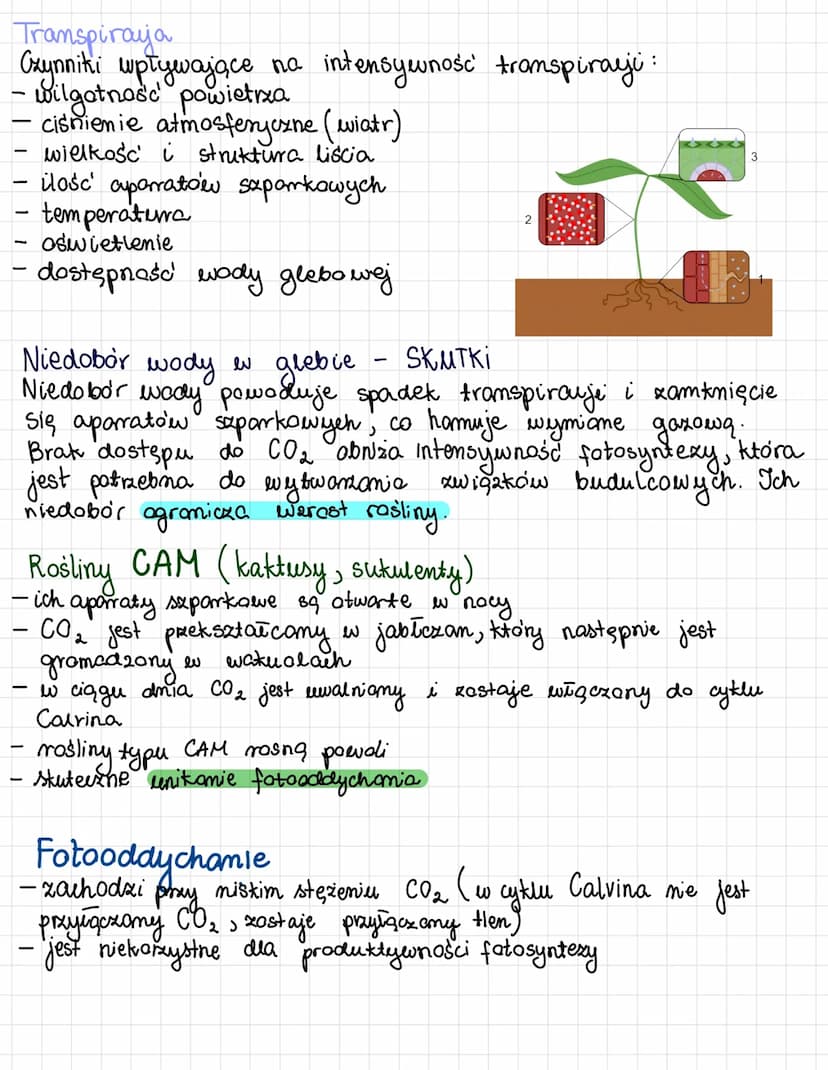 Transpiracja
Czynniki wpływające na intensywność transpiracji:
- wilgotność powietrza
- ciśnienie atmosferyczne (wiatr)
- wielkość i struktura liścia
- ilość aparatów szparkowych
- temperatura
- oświetlenie
- dostępność wody glebowej
3
2
1
Niedobór wody w glebie - SKUTKI
Niedobór wody powoduje spadek transpiracji i zamknięcie
się aparatów szparkowych, co hamuje wymianę gazową.
Brak dostępu do CO₂ obniża intensywność fotosyntezy, która
jest potrzebna do wytwarzania związków budulcowych. Ich
niedobór ogranicza wzrost rośliny.
Rośliny CAM (kaktusy, sukulenty)
- ich aparaty szparkowe są otwarte w nocy
- CO₂ jest przekształcany w jabłczan, który następnie jest
gromadzony w wakuolach
- w ciągu dnia CO₂ jest uwalniany i zostaje włączony do cyklu
Calvina
- rośliny typu CAM rosną powoli
- skuteczne unikanie fotooddychania
Fotooddychanie
- zachodzi przy niskim stężeniu CO₂ (w cyklu Calvina nie jest
przyłączany CO₂, zostaje przyłączany tlen)
- jest niekorzystne dla produktywności fotosyntezy